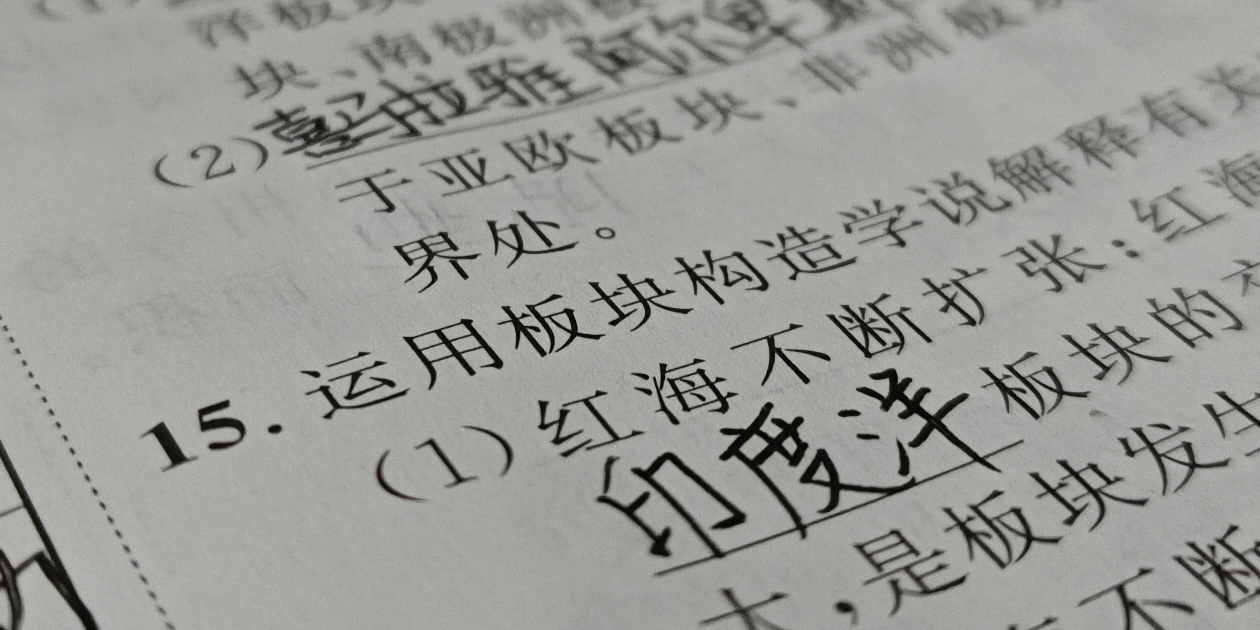 洋板块
块、南极洲
(2)喜马拉雅 阿尔卑斯
于亚欧板块、非洲板块
界处。
15. 运用板块构造学说解释有关
(1)红海不断扩张:红海
印度洋板块的
大,是板块发生
不断